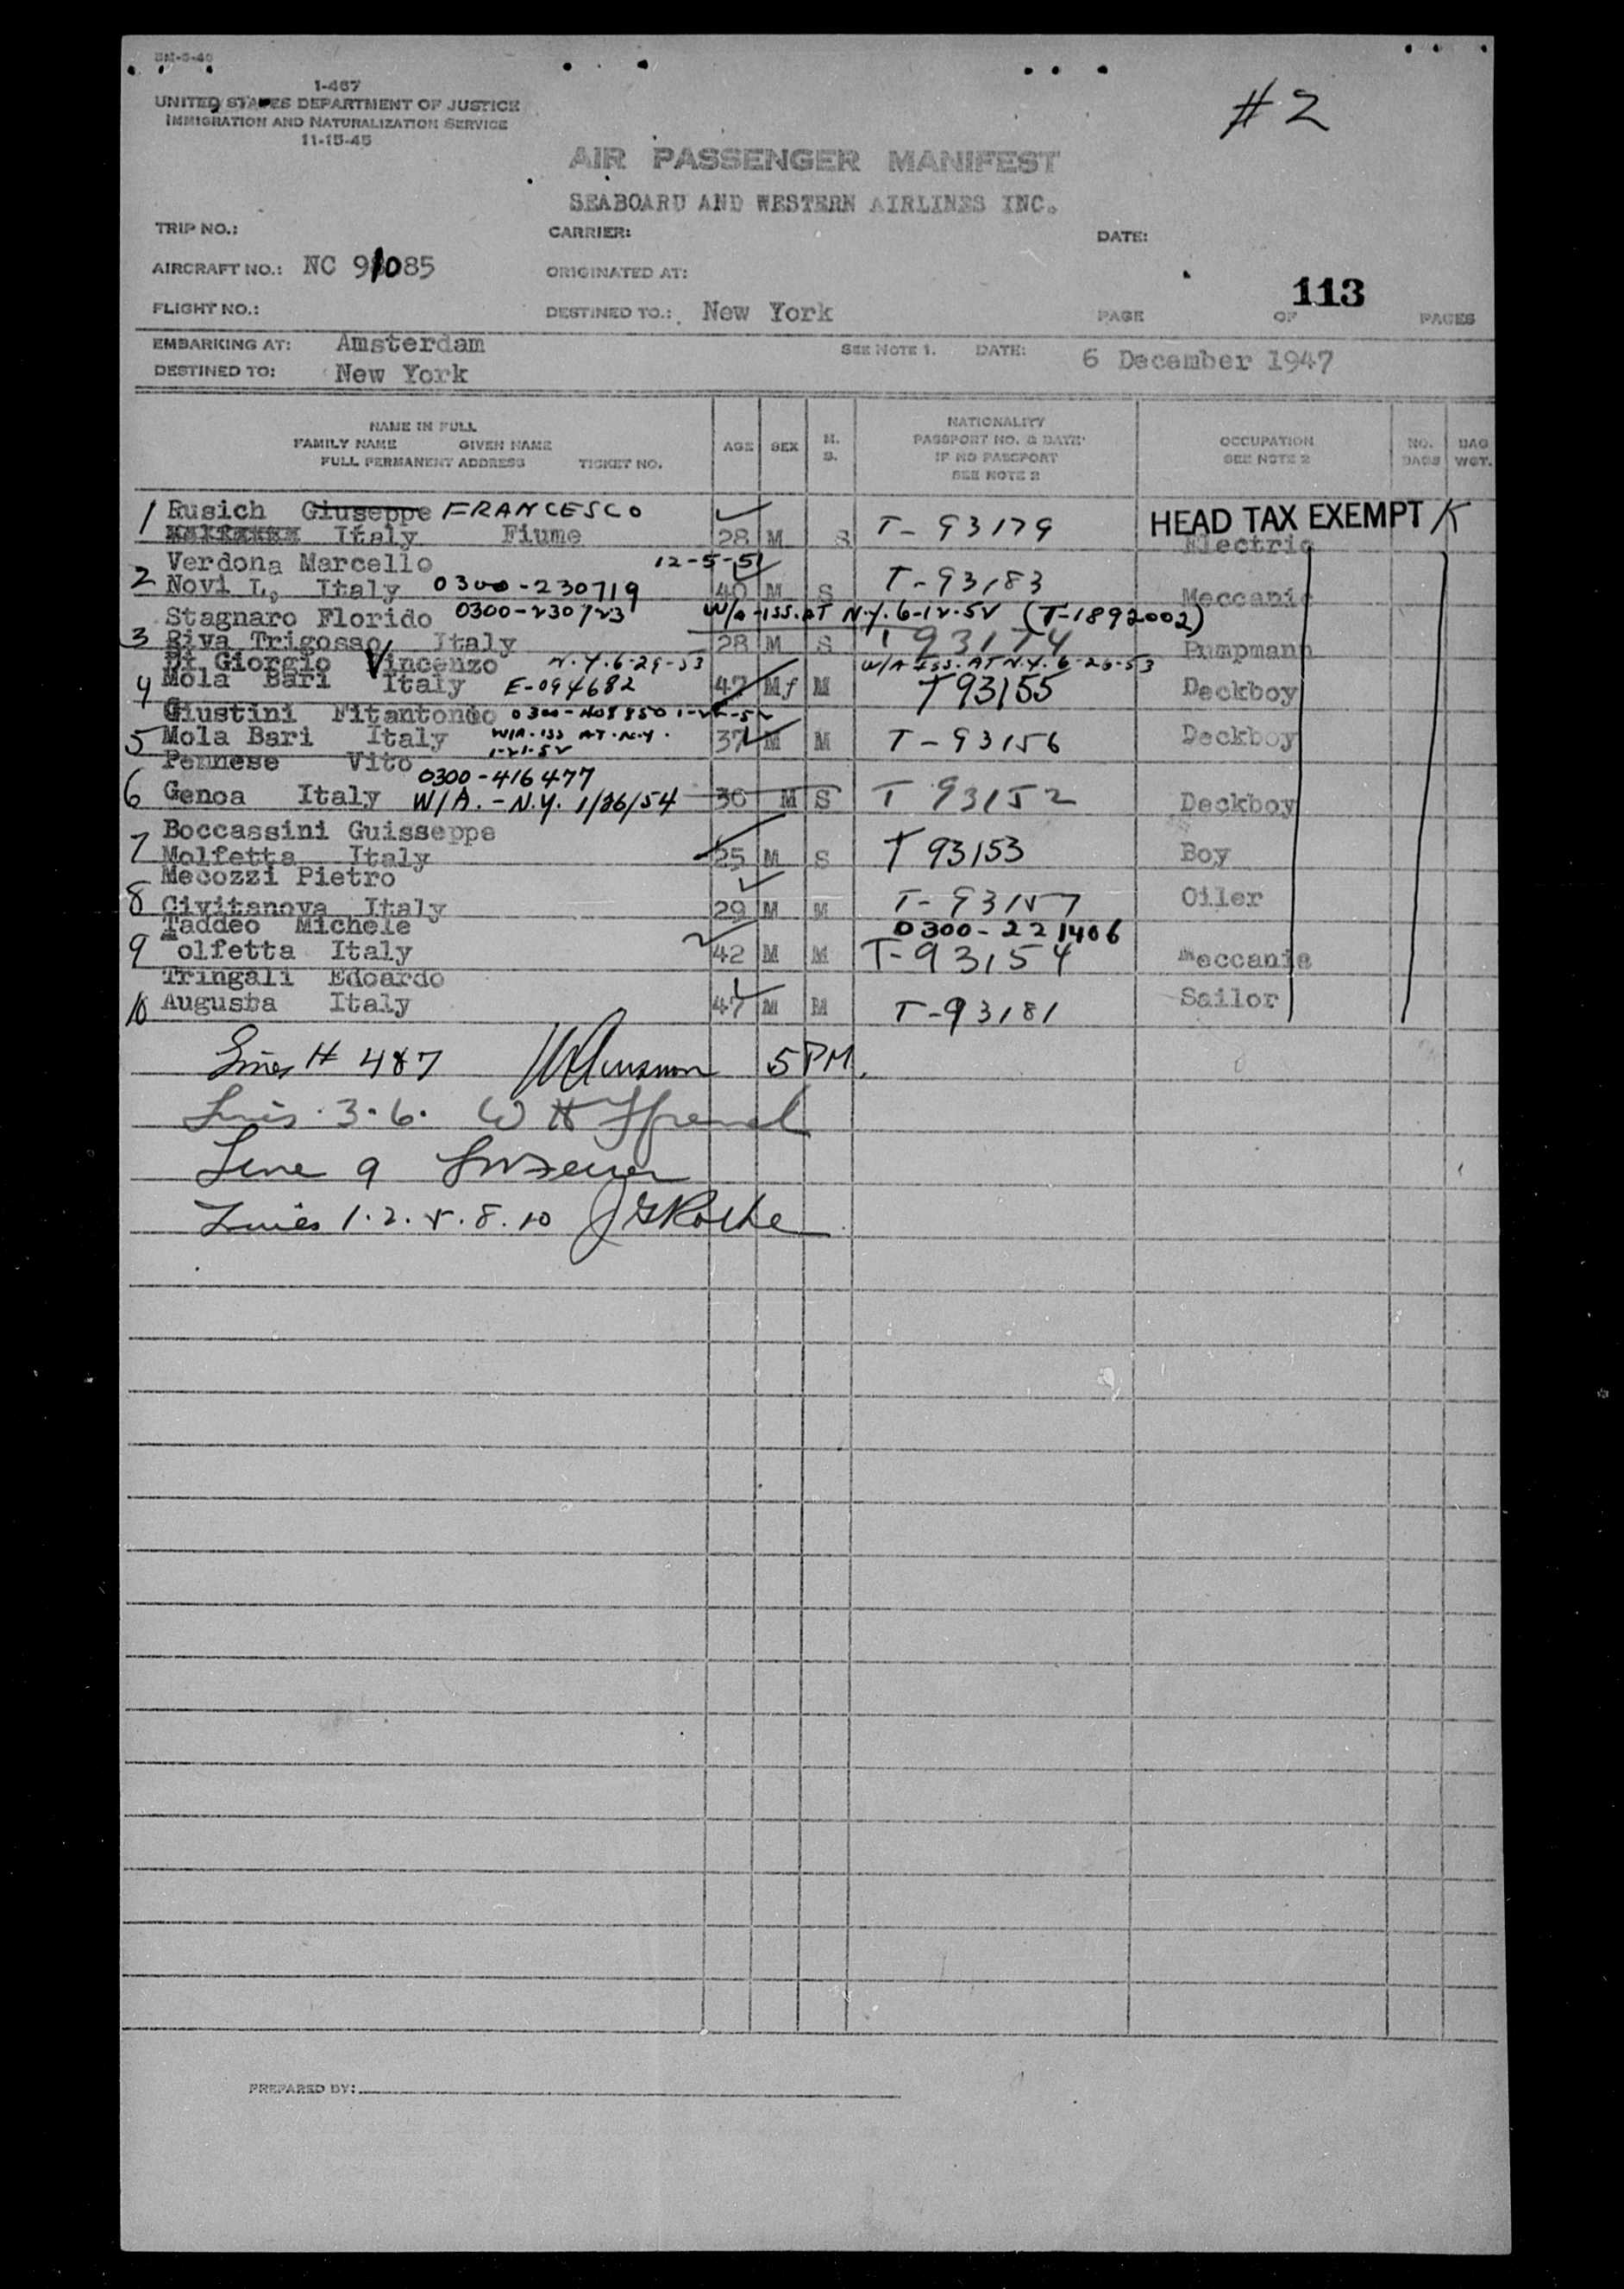 1-467
UNITED STATES DEPARTMENT OF JUSTICE
IMMIGRATION AND NATURALIZATION SERVICE
11-15-45
#2
AIR PASSENGER MANIFEST
SEABOARD AND WESTERN AIRLINES INC.
TRIP NO.: CARRIER: DATE:
AIRCRAFT NO.: NC 91085 ORIGINATED AT:
113
FLIGHT NO.: DESTINED TO.: New York PAGE OF PAGES
EMBARKING AT: Amsterdam SEE NOTE 1. DATE: 6 December 1947
DESTINED TO: New York
NAME IN FULL
FAMILY NAME GIVEN NAME
FULL PERMANENT ADDRESS TICKET NO.
AGE SEX M. S.
NATIONALITY
PASSPORT NO. & DATE
IF NO PASSPORT
SEE NOTE 2
OCCUPATION
SEE NOTE 2
NO. BAGS
BAG WGT.
1 Rusich Giuseppe FRANCESCO HEAD TAX EXEMPT K
Italy Fiume 28 M S T-93179 Electric
Verdona Marcello 12-5-51
2 Novi L, Italy 0300-230719 40 M S T-93183 Meccanic
Stagnaro Florido 0300-230723 W/A-ISS. AT N.Y. 6-12-52 (T-1892002)
3 Riva Trigosso Italy 28 M S T 93174 Pumpmann
Di Giorgio Vincenzo N.Y. 6-29-53 W/A ISS. AT N.Y. 6-26-53
4 Mola Bari Italy E-094682 47 M M T 93155 Deckboy
Giustini Fitantonio 0300-408850 1-22-52
5 Mola Bari Italy W/A. ISS AT. N.Y. 1-21-52 37 M M T-93156 Deckboy
Pennese Vito 0300-416477
6 Genoa Italy W/A. - N.Y. 1/26/54 36 M S T 93152 Deckboy
Boccassini Guisseppe
7 Molfetta Italy 25 M S T 93153 Boy
Mecozzi Pietro
8 Civitanova Italy 29 M M T-93157 Oiler
Taddeo Michele 0300-221406
9 molfetta Italy 42 M M T-93154 Meccanic
Tringali Edoardo
10 Augusta Italy 47 M M T-93181 Sailor
Lines # 487 5 PM.
Lines 3.6. W H
Line 9
Lines 1.2.5.8.10 J G Roche
PREPARED BY: